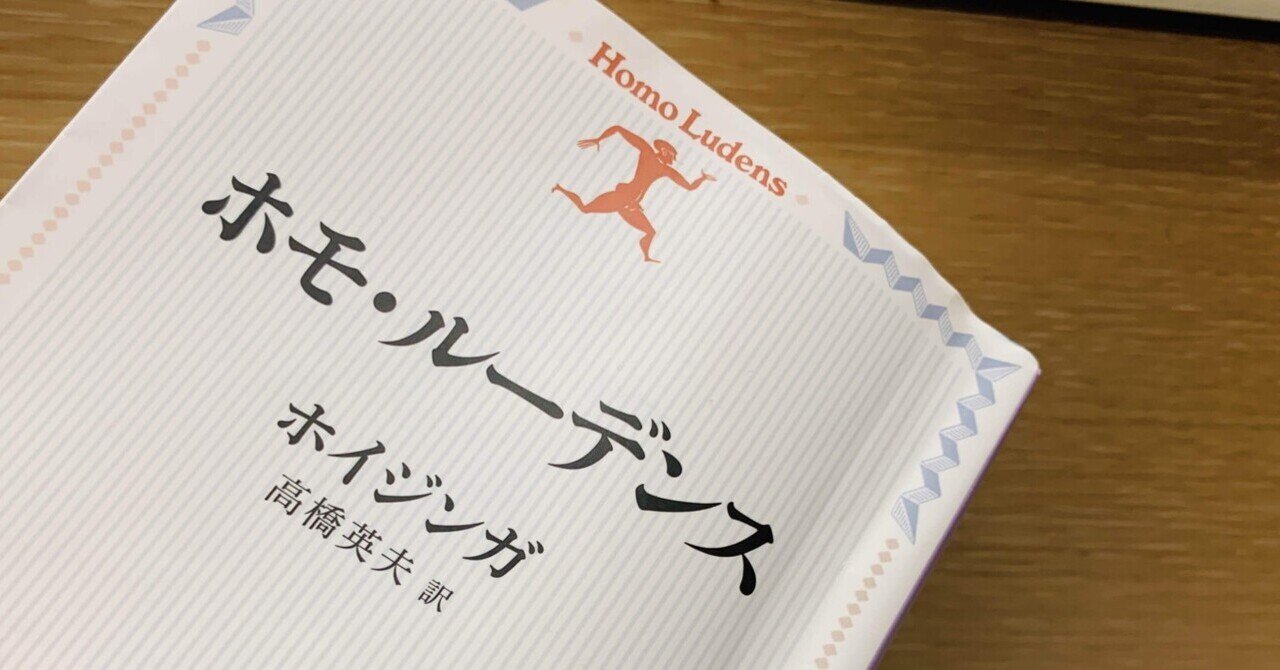 Homo Ludens
ホモ・ルーデンス
ホイジンガ
高橋英夫 訳